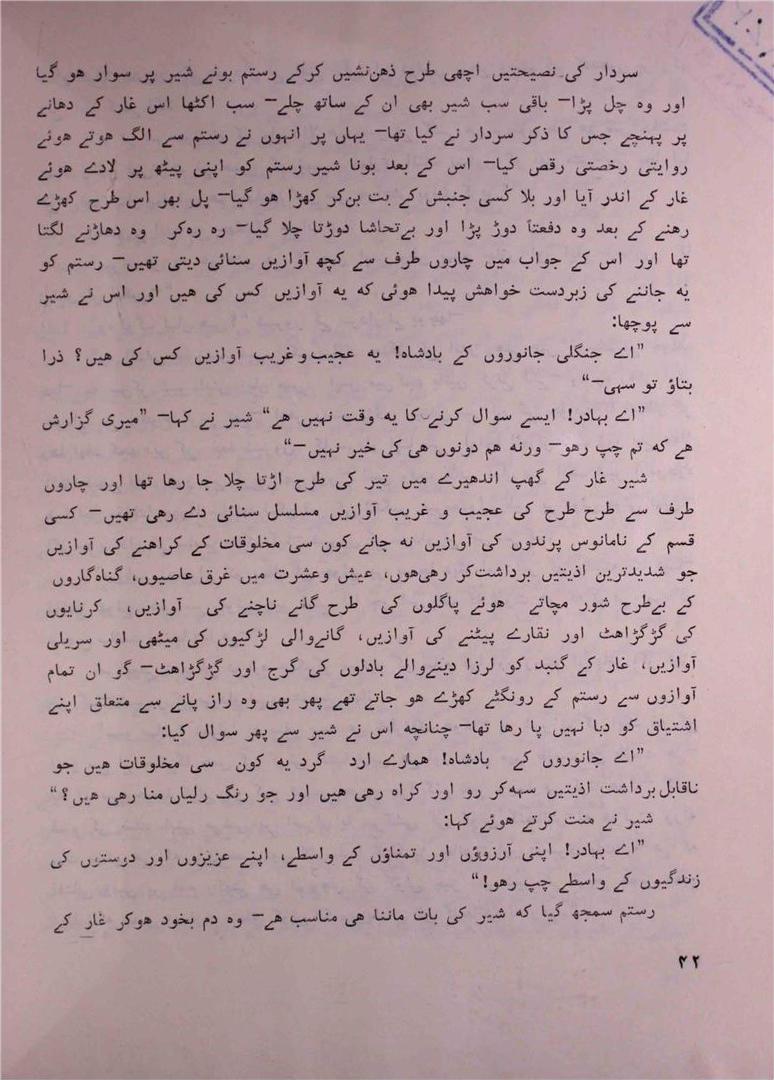 سردار کی نصیحتیں اچھی طرح ذهن نشیں کرکے رستم بونے شیر پر سوار هو گیا
اور وه چل پڑا— باقی سب شیر بھی ان کے ساتھ چلے— سب اکٹھا اس غار کے دهانے
پر پهنچے جس کا ذکر سردار نے کیا تھا— یهاں پر انهوں نے رستم سے الگ هوتے هوئے
روایتی رخصتی رقص کیا— اس کے بعد بونا شیر رستم کو اپنی پیٹھ پر لادے هوئے
غار کے اندر آیا اور بلا کسی جنبش کے بت بن کر کھڑا هو گیا— پل بھر اس طرح کھڑے
رهنے کے بعد وه دفعتاً دوڑ پڑا اور بےتحاشا دوڑتا چلا گیا— ره ره کر وه دهاڑنے لگتا
تھا اور اس کے جواب میں چاروں طرف سے کچھ آوازیں سنائی دیتی تھیں— رستم کو
یه جاننے کی زبردست خواهش پیدا هوئی که یه آوازیں کس کی هیں اور اس نے شیر
سے پوچھا:
”اے جنگلی جانوروں کے بادشاه! یه عجیب و غریب آوازیں کس کی هیں؟ ذرا
بتاؤ تو سهی—“
”اے بهادر! ایسے سوال کرنے کا یه وقت نهیں هے“ شیر نے کها— ”میری گزارش
هے که تم چپ رهو— ورنه هم دونوں هی کی خیر نهیں—“
شیر غار کے گھپ اندھیرے میں تیر کی طرح اڑتا چلا جا رها تھا اور چاروں
طرف سے طرح طرح کی عجیب و غریب آوازیں مسلسل سنائی دے رهی تھیں— کسی
قسم کے نامانوس پرندوں کی آوازیں نه جانے کون سی مخلوقات کے کراهنے کی آوازیں
جو شدیدترین اذیتیں برداشت کر رهی هوں، عیش وعشرت میں غرق عاصیوں، گناه گاروں
کے بےطرح شور مچاتے هوئے پاگلوں کی طرح گانے ناچنے کی آوازیں، کرنایوں
کی گڑگڑاهٹ اور نقارے پیٹنے کی آوازیں، گانے والی لڑکیوں کی میٹھی اور سریلی
آوازیں، غار کے گنبد کو لرزا دینے والے بادلوں کی گرج اور گڑگڑاهٹ— گو ان تمام
آوازوں سے رستم کے رونگٹے کھڑے هو جاتے تھے پھر بھی وه راز پانے سے متعلق اپنے
اشتیاق کو دبا نهیں پا رها تھا— چنانچه اس نے شیر سے پھر سوال کیا:
”اے جانوروں کے بادشاه! همارے ارد گرد یه کون سی مخلوقات هیں جو
ناقابل برداشت اذیتیں سهه کر رو اور کراه رهی هیں اور جو رنگ رلیاں منا رهی هیں؟“
شیر نے منت کرتے هوئے کها:
”اے بهادر! اپنی آرزوؤں اور تمناؤں کے واسطے، اپنے عزیزوں اور دوستوں کی
زندگیوں کے واسطے چپ رهو!“
رستم سمجھ گیا که شیر کی بات ماننا هی مناسب هے— وه دم بخود هوکر غار کے
۴۲